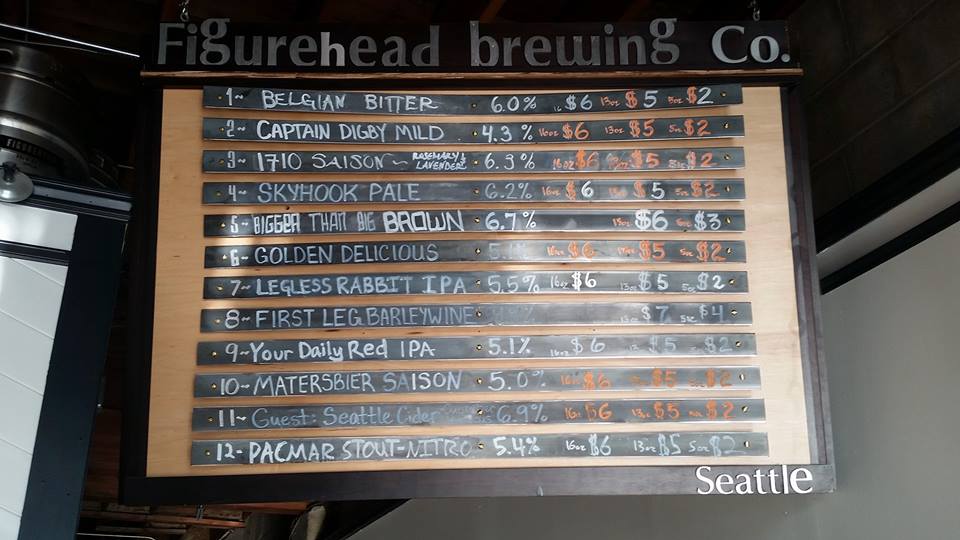 Figurehead brewing Co.
1~ BELGIAN BITTER 6.0% 16 $6 13oz $5 5oz $2
2~ CAPTAIN DIGBY MILD 4.3% 16oz $6 13oz $5 5oz $2
3~ 1710 SAISON ~ ROSEMARY & LAVENDER 6.3% 16oz $6 $5 5oz $2
4~ SKYHOOK PALE 6.2% 16oz $6 $5 5oz $2
5~ BIGGER THAN BIG BROWN 6.7% 13oz $6 5oz $3
6~ GOLDEN DELICIOUS 16oz $6 13oz $5 5oz $2
7~ LEGLESS RABBIT IPA 5.5% 16oz $6 13oz $5 5oz $2
8~ FIRST LEG BARLEYWINE 13oz $7 5oz $4
9~ Your Daily Red IPA 5.1% 16oz $6 $5 $2
10~ MATERSBIER SAISON 5.0% 16oz $6 $5 $2
11~ Guest: Seattle Cider 6.9% 16oz $6 13oz $5 $2
12~ PACMAR STOUT-NITRO 5.4% 16oz $6 13oz $5 5oz $2
Seattle